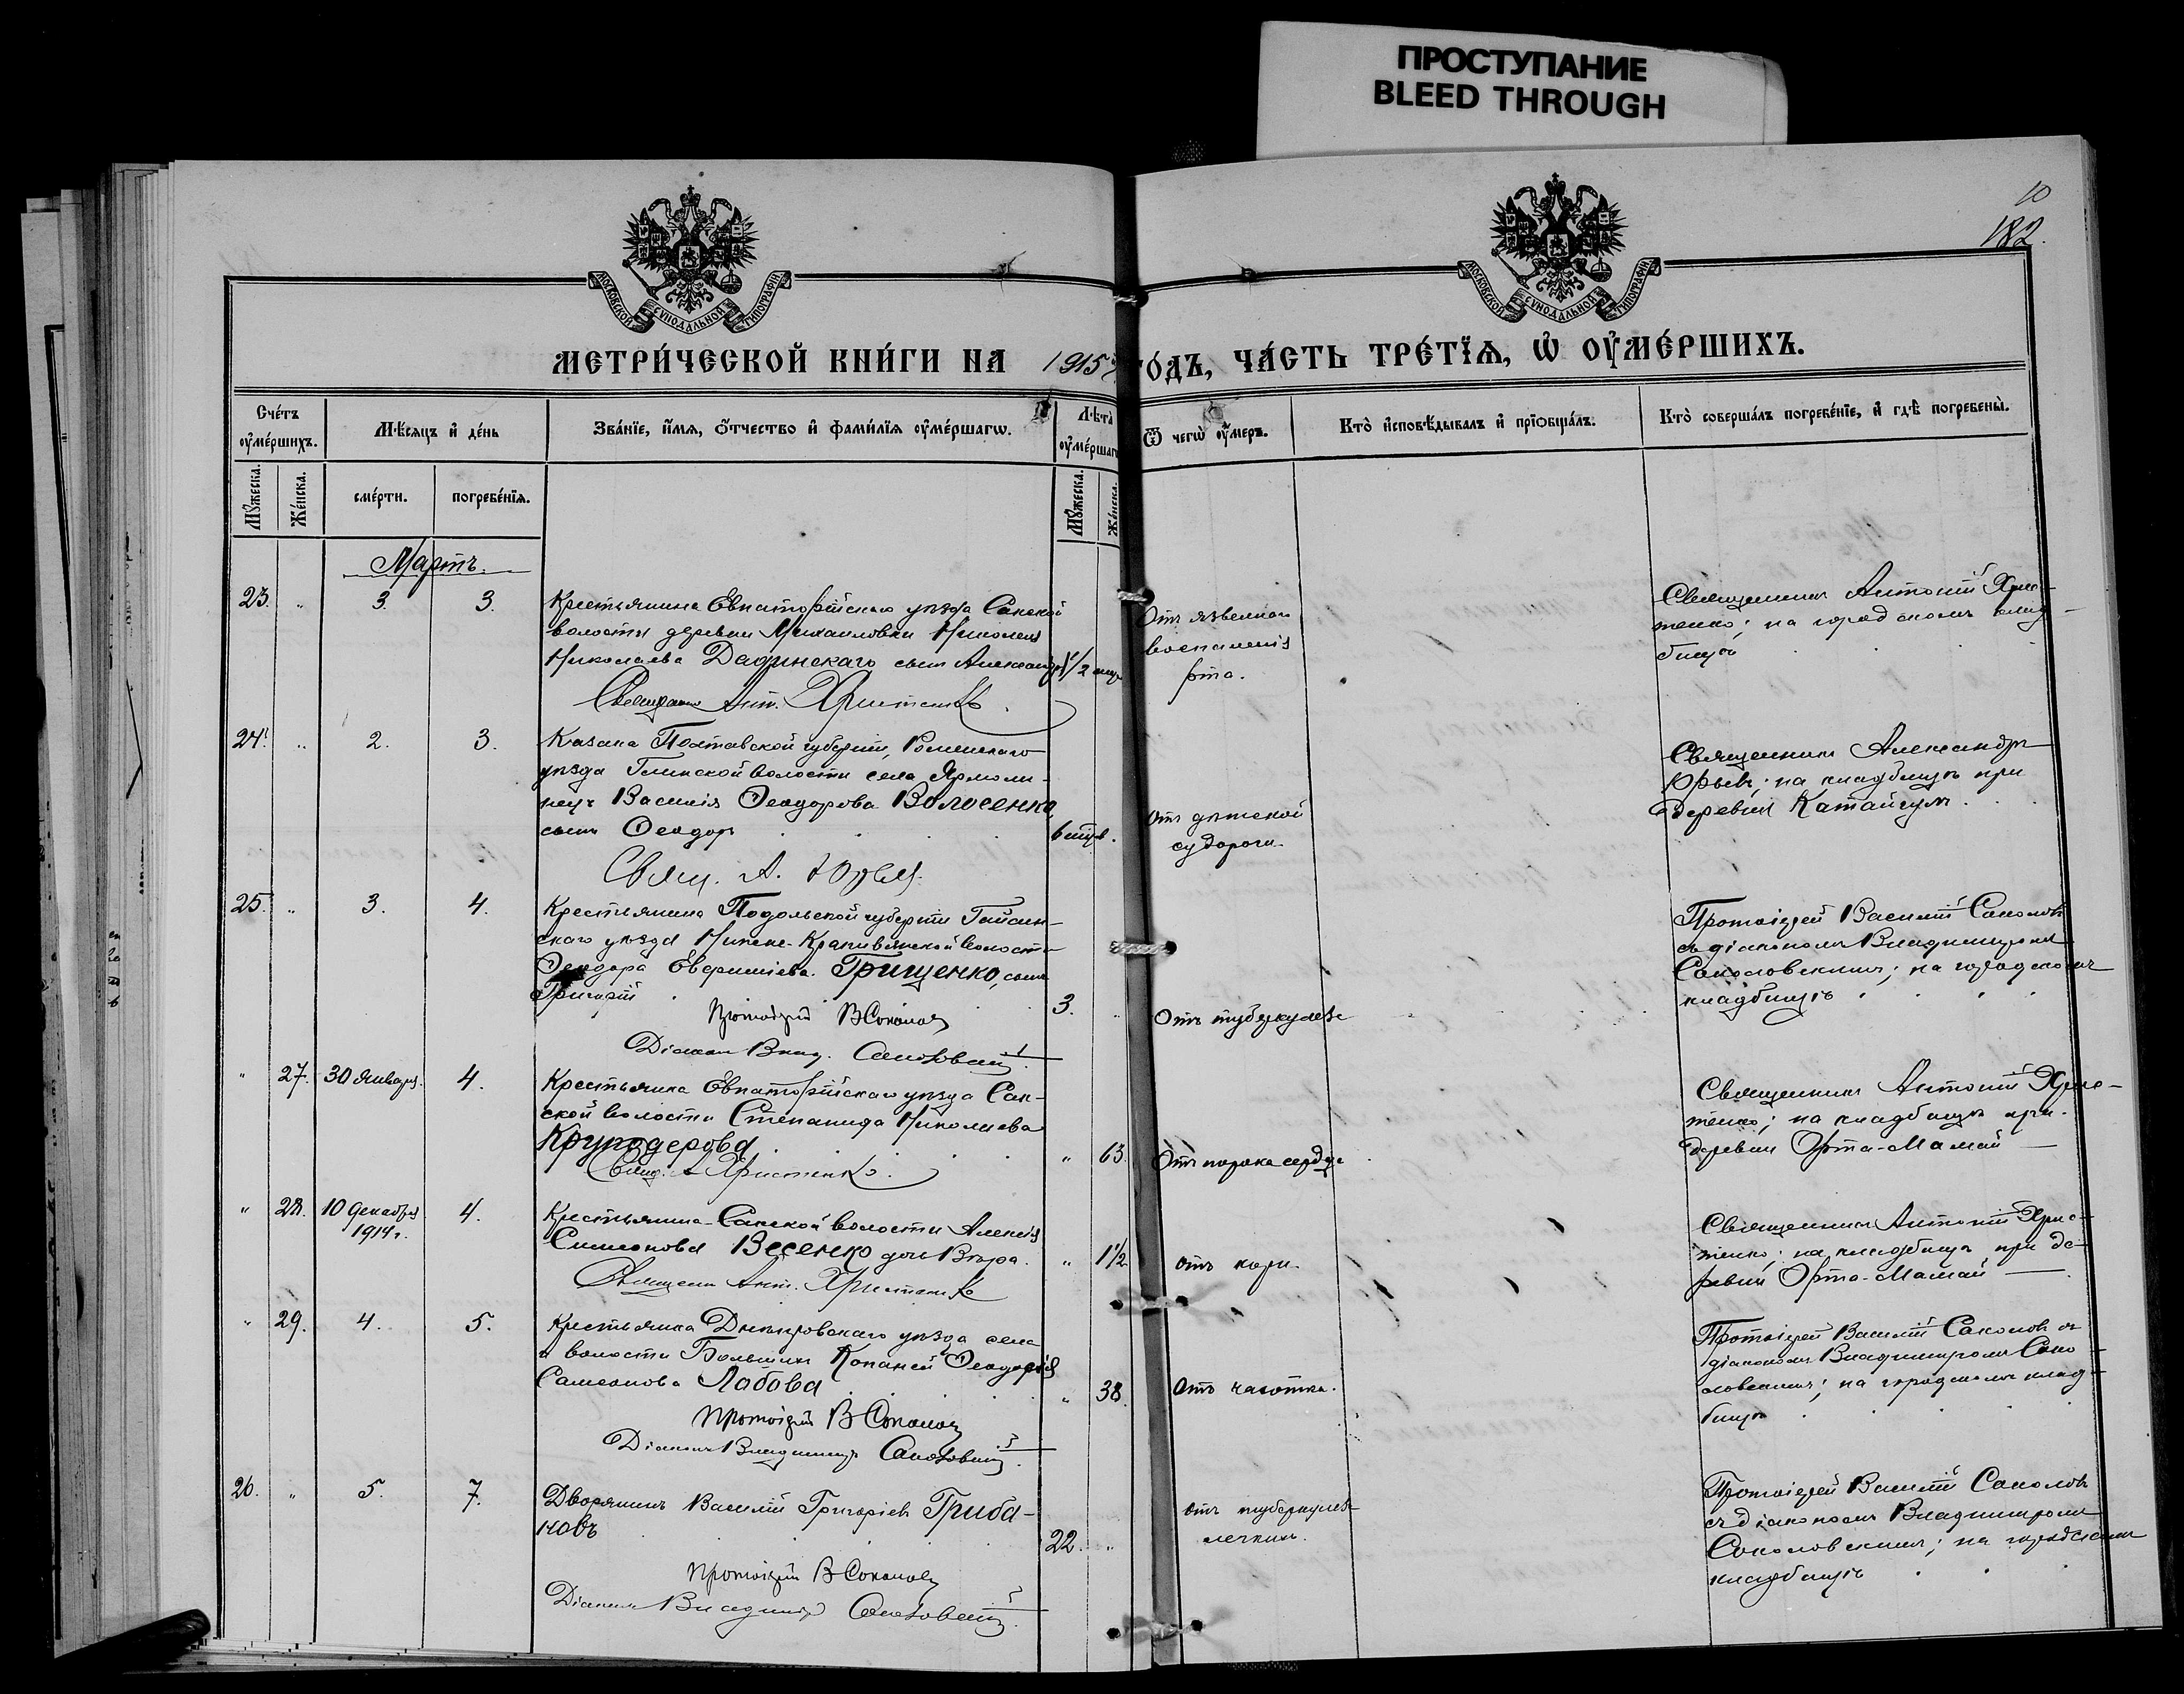 ПРОСТУПАНИЕ
BLEED THROUGH
10
182.
МОСКОВСКОЙ СУНОДАЛЬНОЙ ТИПОГРАФІИ
МОСКОВСКОЙ СУНОДАЛЬНОЙ ТИПОГРАФІИ
МЕТРИ́ЧЕСКОЙ КНИ́ГИ НА 1915 ГО́ДЪ, ЧА́СТЬ ТРЕ́ТЇѦ, Ѡ҆ ОУ҆МЕ́РШИХЪ.
Сче́тъ оу҆ме́ршихъ.
Мѣ́сяцъ и҆ де́нь
Зва́нїе, и҆́мя, ѻ҆́тчество и҆ фами́лїя оу҆ме́ршагѡ.
Лѣ́та оу҆ме́ршагѡ
Ѿ чегѡ̀ оу҆́меръ.
Кто̀ и҆сповѣ́дывалъ и҆ прїѡбща́лъ.
Кто̀ соверша́лъ погребе́нїе, и҆ гдѣ̀ погребены̀.
Мꙋ́жеска.
Же́нска.
сме́рти.
погребе́нїя.
Мꙋ́жеска.
Же́нска.
Мартъ.
23. " 3. 3.
Крестьянина Евпаторійскаго уѣзда Сакской
волости деревни Михаиловки Николая
Николаева Дадинскаго сынъ Александръ 1/2
Священникъ Ант. Христенко
Отъ язвеннаго
воспаленія
рта.
Священникъ Антоній Хрис-
тенко; на городскомъ клад-
бищѣ
24. " 2. 3.
Казака Полтавской губерніи, Роменскаго
уѣзда Глинской волости села Ярмоли-
нецъ Василія Ѳеодорова Волосенко
сынъ Ѳеодоръ 6 мѣс.
Свящ. А. Юрьев
Отъ дѣтской
судороги.
Священникъ Александръ
Юрьевъ; на кладбищѣ при
деревни Катайгулъ.
25. " 3. 4.
Крестьянина Подольской губерніи Гайсин-
скаго уѣзда Нижне-Крапивянской волости
Ѳеодора Григорій Грищенко, сынъ
Григорій 3.
Протоіерей В Соколов
Діаконъ Влад. Соколовскій
Отъ туберкулеза
Протоіерей Василій Соколовъ
съ діакономъ Владиміромъ
Соколовскимъ; на городскомъ
кладбищѣ
" 27. 30 Января. 4.
Крестьянка Евпаторійскаго уѣзда Сак-
ской волости Степанида Николаева
Круподерова " 63.
Свящ. А Христенко.
Отъ порока сердца
Священникъ Антоній Хрис-
тенко; на кладбищѣ при
деревни Орта-Мамай
" 28. 10 декабря 4.
1914 г.
Крестьянина Сакской волости Алексѣя
Симеонова Весенко дочь Вѣра. " 1 1/2
Священн Ант. Христенко
отъ кори.
Священникъ Антоній Хрис-
тенко; на кладбищѣ при де-
ревни Орта-Мамай
" 29. 4. 5.
Крестьянка Днѣпровскаго уѣзда села
и волости Большихъ Копаней Ѳеодосія
Самсонова Лабова " 38.
Протоіерей В Соколов
Діаконъ Владиміръ Соколовскій
Отъ чахотки.
Протоіерей Василій Соколовъ съ
діакономъ Владиміромъ Соко-
ловскимъ; на городскомъ клад-
бищѣ
26. " 5. 7.
Дворянинъ Василій Григоріевъ Гриба-
новъ 22. "
Протоіерей В Соколов
Діаконъ Владиміръ Соколовскій
отъ туберкулеза
легкихъ.
Протоіерей Василій Соколовъ
съ діакономъ Владиміромъ
Соколовскимъ; на городскомъ
кладбищѣ